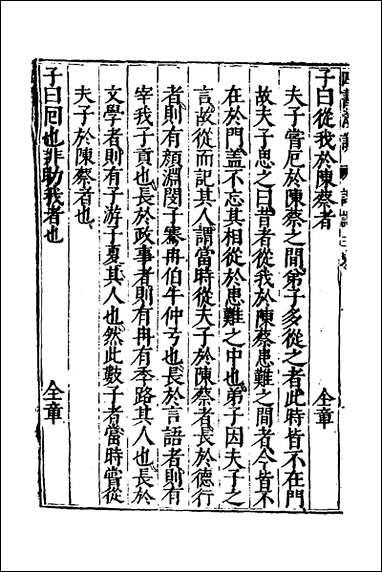 子曰從我於陳蔡者 全章
夫子嘗厄於陳蔡之間弟子多從之者此時皆不在門
故夫子思之曰昔者從我於陳蔡患難之間者今皆不
在於門蓋不忘其相從於患難之中也弟子因夫子之
言故從而記其人謂當時從夫子於陳蔡者長於德行
者則有顏淵閔子騫冉伯牛仲弓也長於言語者則有
宰我子貢也長於政事者則有冉有季路其人也長於
文學者則有子游子夏其人也然此數子者當時嘗從
夫子於陳蔡者也
子曰囘也非助我者也 全章